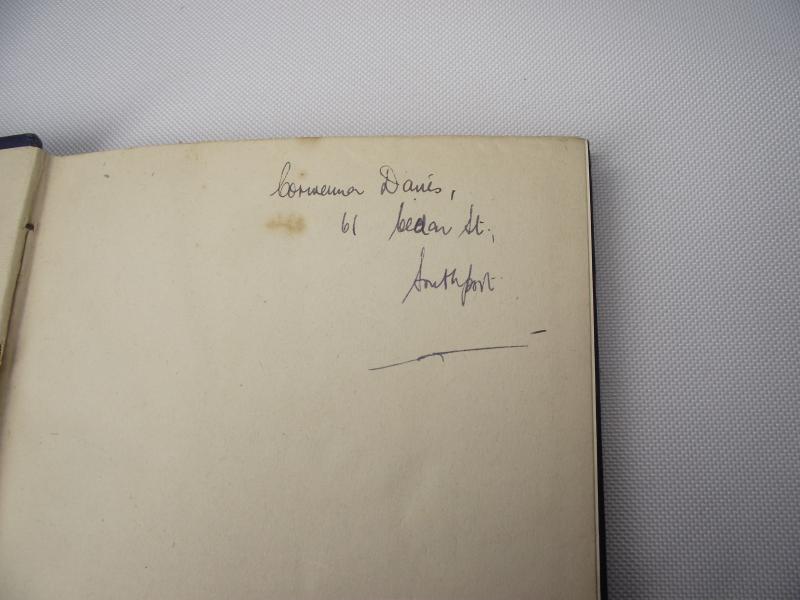 Corwenna Davies,
61 Cedar St.,
Southport.